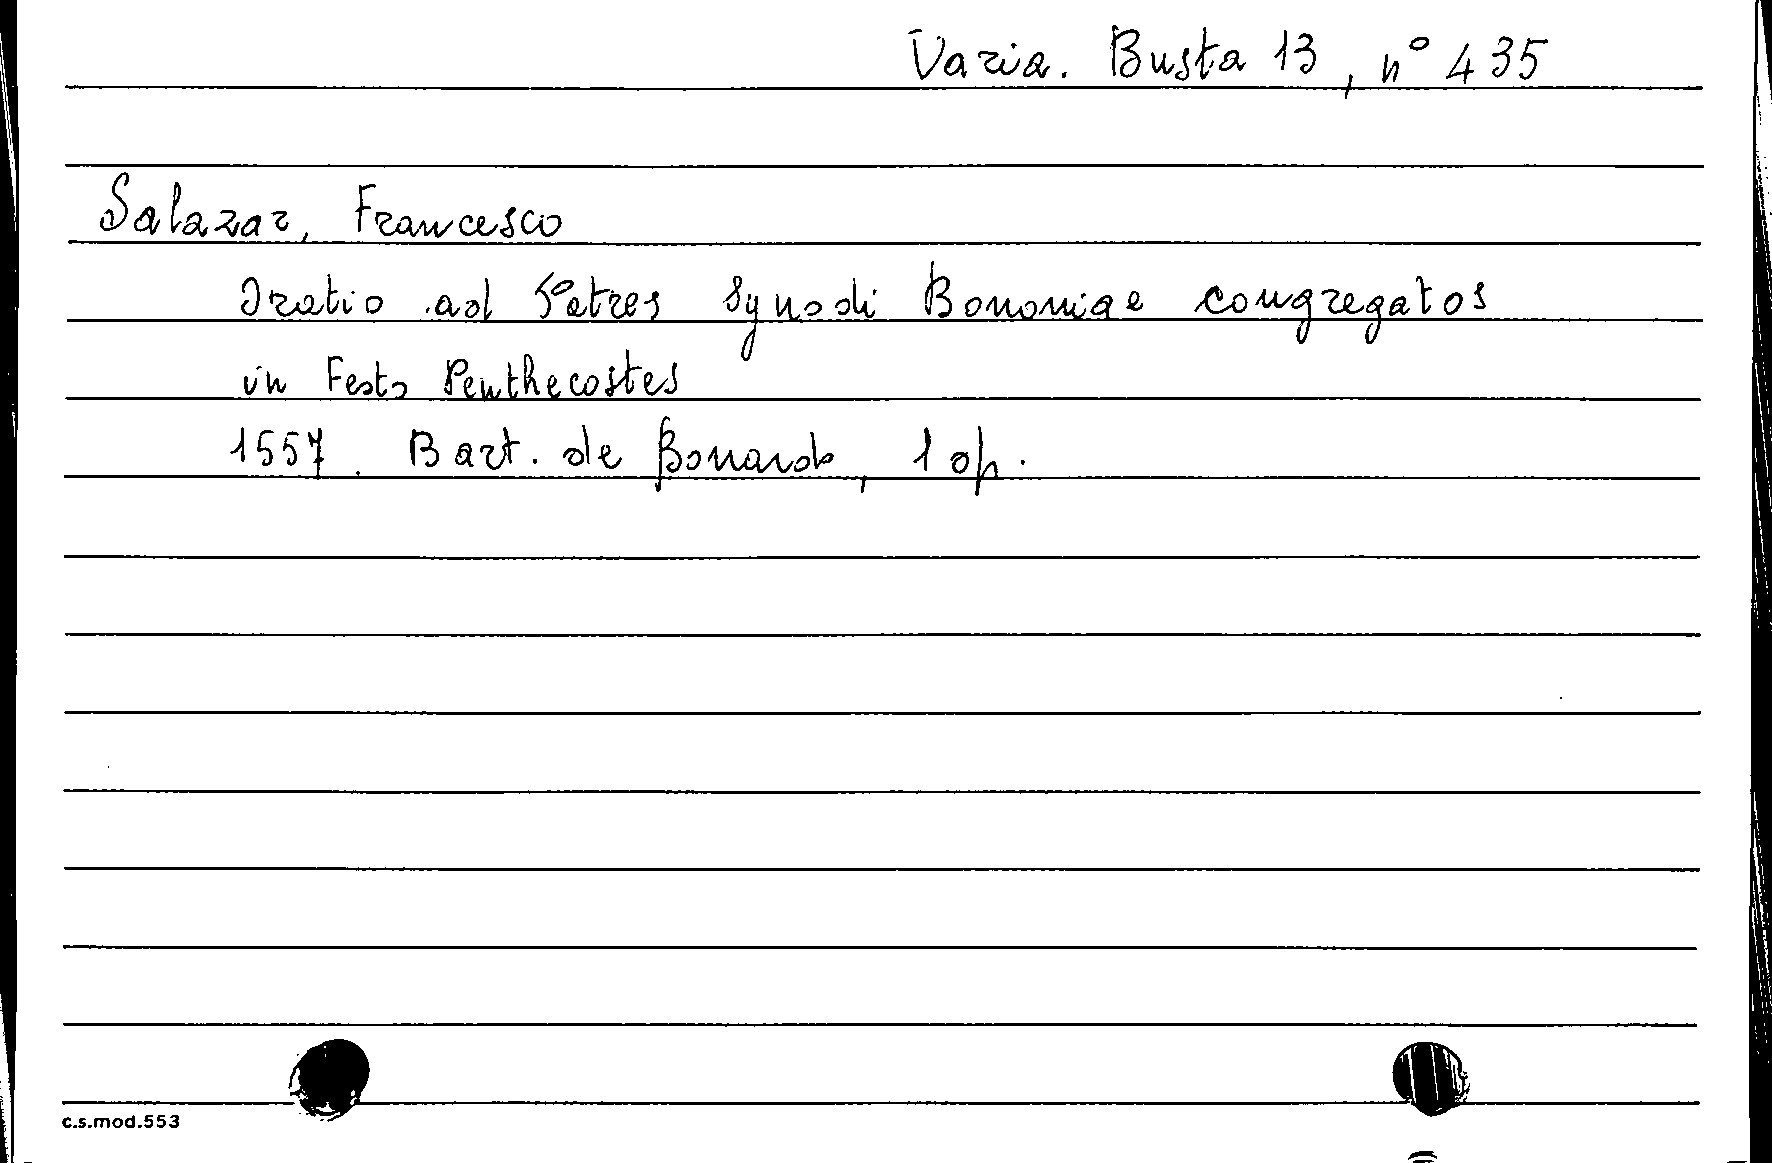 Varia. Busta 13, n° 435
Salazar, Francesco
Oratio ad Patres Synodi Bononiae congregatos
in Festo Penthecostes
1557. Bart. de Bonardo, 1 op.
c.s.mod.553